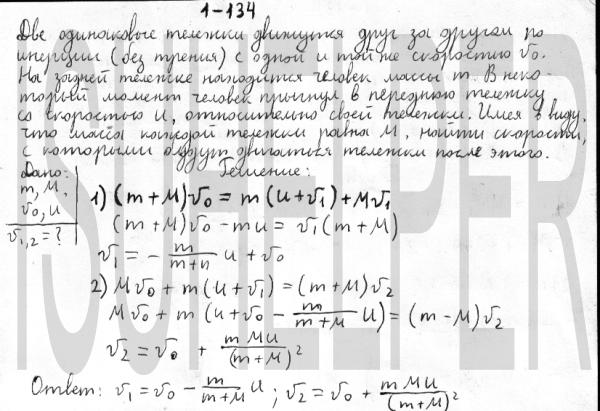 1-134
Две одинаковые тележки движутся друг за другом по
инерции (без трения) с одной и той же скоростью v₀.
На задней тележке находится человек массы m. В неко-
торый момент человек прыгнул в переднюю тележку
со скоростью u, относительно своей тележки. Имея в виду,
что масса каждой тележки равна M, найти скорости,
с которыми будут двигаться тележки после этого.
Дано:
m, M,
v₀, u
v₁,₂ = ?
Решение:
1) (m+M)v₀ = m(u+v₁)+Mv₁
(m+M)v₀ - mu = v₁(m+M)
v₁ = - m/(m+M) u + v₀
2) Mv₀ + m(u+v₁) = (m+M)v₂
Mv₀ + m(u+v₀ - m/(m+M) u) = (m-M)v₂
v₂ = v₀ + mMu/(m+M)²
Ответ: v₁ = v₀ - m/(m+M) u; v₂ = v₀ + mMu/(m+M)²
5UHELPER